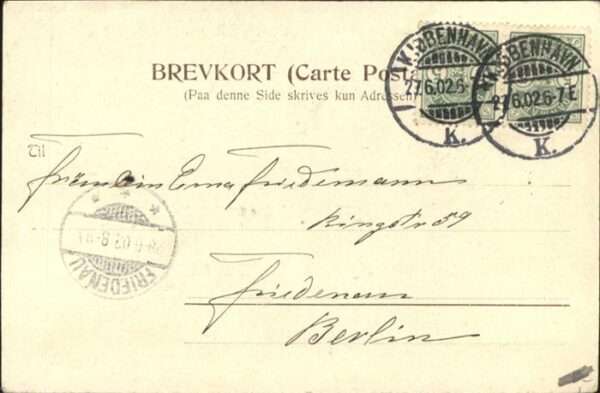 BREVKORT (Carte Posta
(Paa denne Side skrives kun Adressen)
KJØBENHAVN
27.6.02 6-
K.
KJØBENHAVN
27.6.02 6-7 E
K.
Fräulein Erna Friedemann
Ringstr 59
Friedenau
Berlin
FRIEDENAU